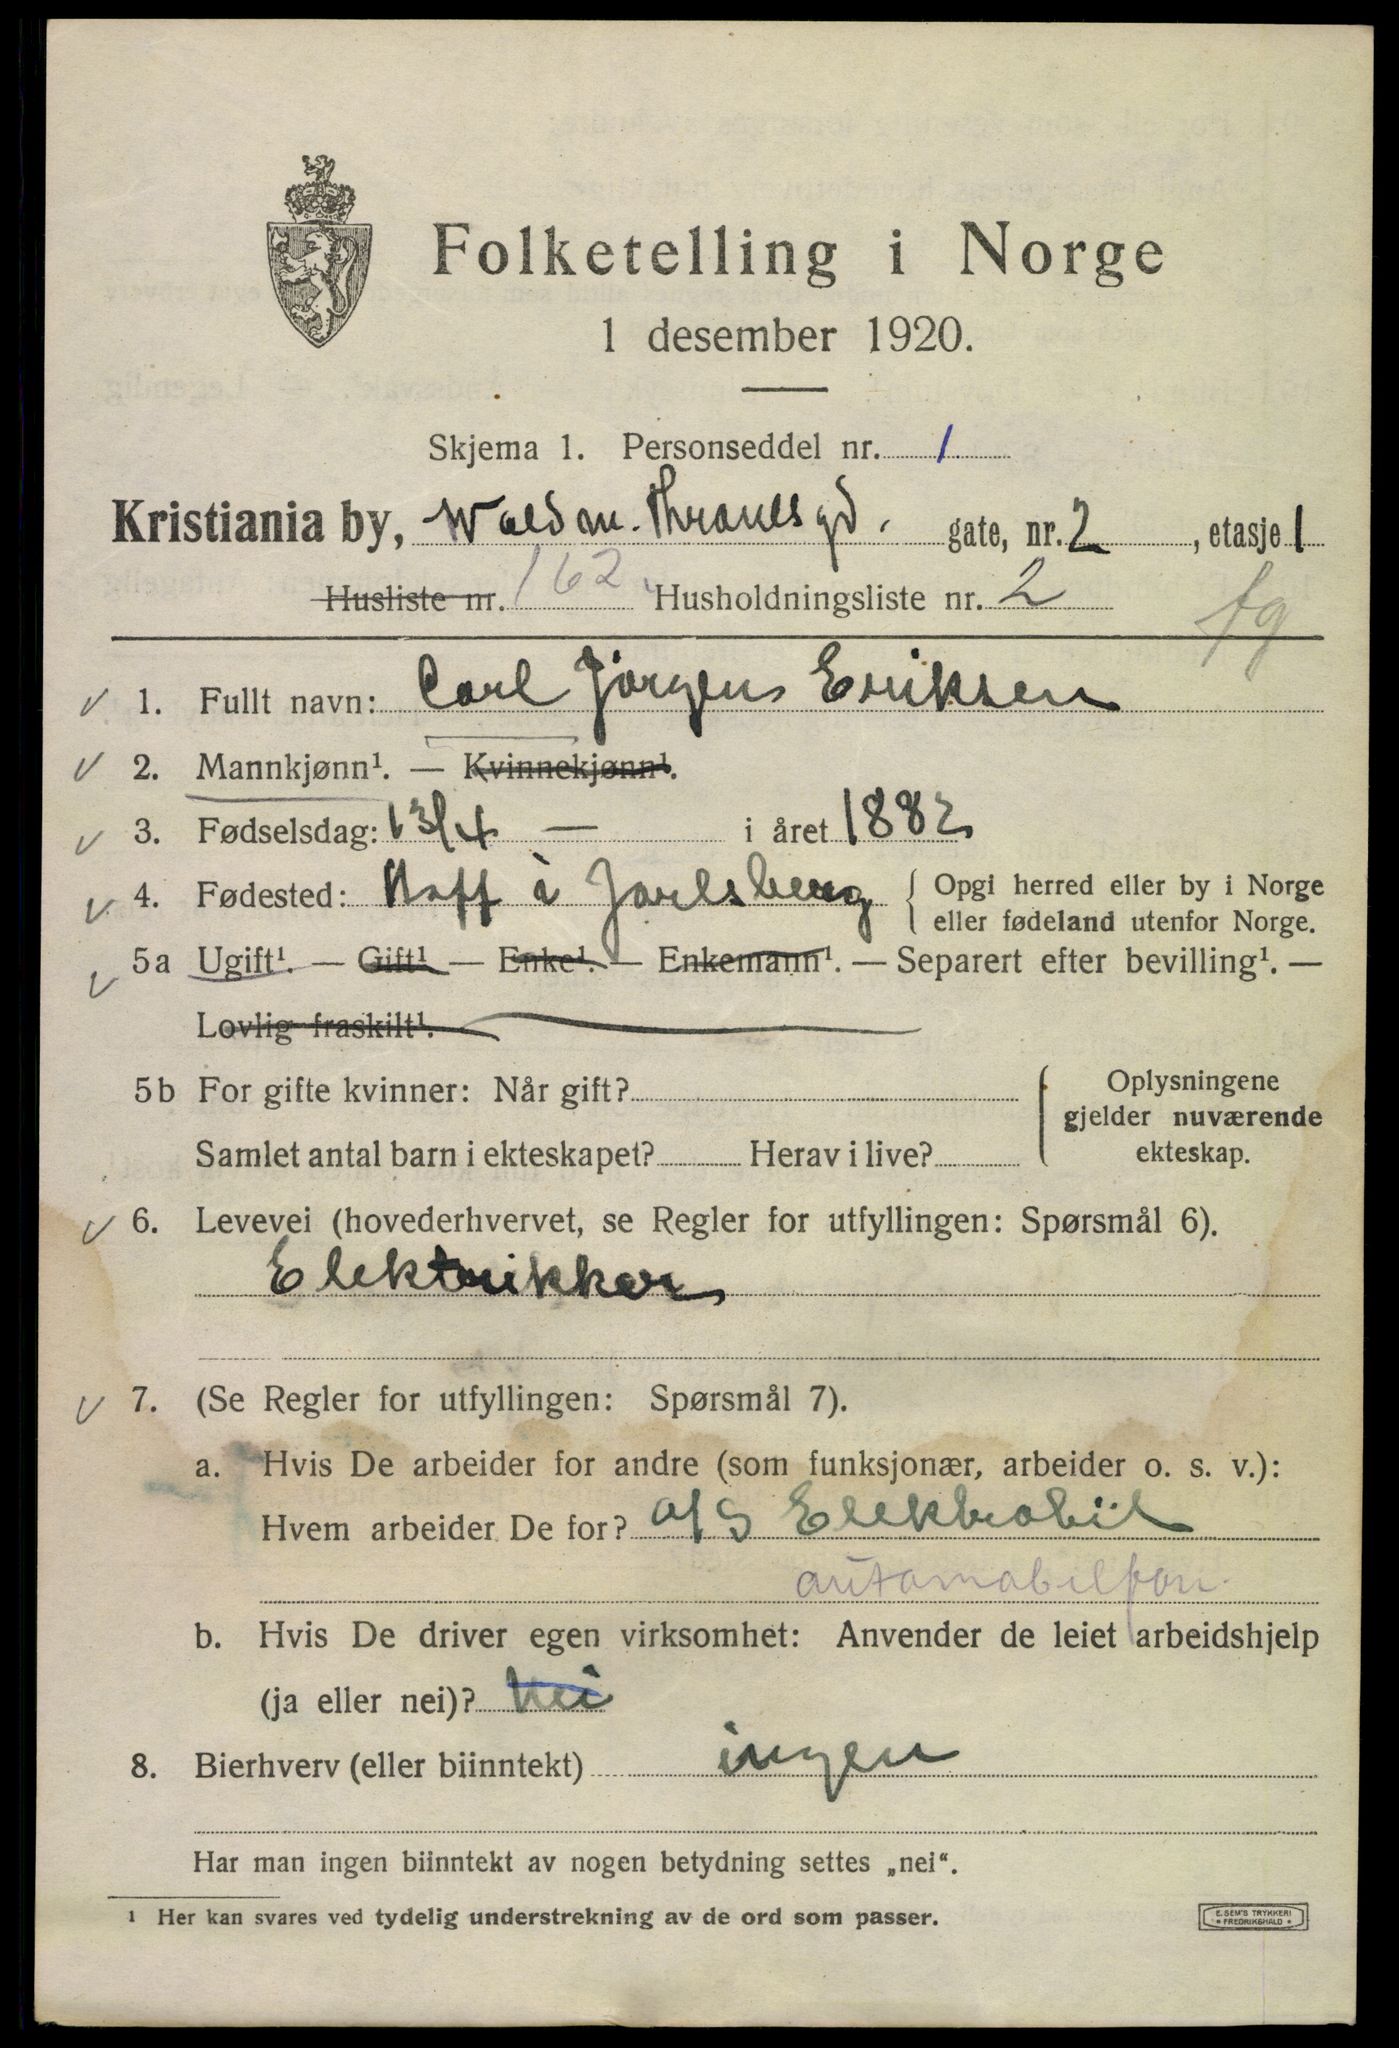 Folketelling i Norge
1 desember 1920.
Skjema 1. Personseddel nr. 1
Kristiania by, Waldm. Thranesgd. gate, nr. 2, etasje 1
Husliste nr. 162 Husholdningsliste nr. 2
1. Fullt navn: Carl Jörgens Eriksen
2. Mannkjønn¹. — Kvinnekjønn¹.
3. Fødselsdag: 13/4 — i året 1882
4. Fødested: Hoff à Jarlsberg { Opgi herred eller by i Norge
eller fødeland utenfor Norge.
5a Ugift¹. — Gift¹ — Enke¹. — Enkemann¹. — Separert efter bevilling¹. —
Lovlig fraskilt¹.
5b For gifte kvinner: Når gift? { Oplysningene
gjelder nuværende
Samlet antal barn i ekteskapet? Herav i live? ekteskap.
6. Levevei (hovederhvervet, se Regler for utfyllingen: Spørsmål 6).
Elektrikker
7. (Se Regler for utfyllingen: Spørsmål 7).
a. Hvis De arbeider for andre (som funksjonær, arbeider o. s. v.):
Hvem arbeider De for? a/S Elektrobil
b. Hvis De driver egen virksomhet: Anvender de leiet arbeidshjelp
(ja eller nei)? Nei
8. Bierhverv (eller biinntekt) ingen
Har man ingen biinntekt av nogen betydning settes „nei“.
¹ Her kan svares ved tydelig understrekning av de ord som passer.
E. SEM'S TRYKKERI
* FREDRIKSHALD *